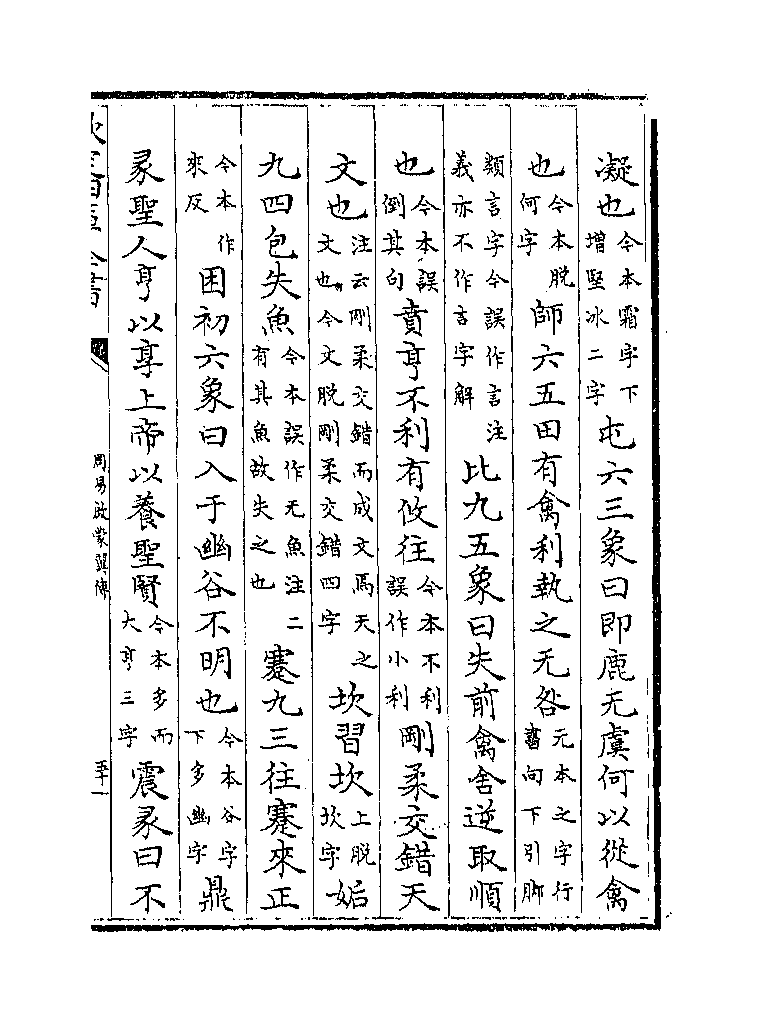 凝也今本霜字下增堅冰二字屯六三象曰即鹿无虞何以從禽
也今本脱何字師六五田有禽利執之无咎元本之字行書向下引脚
類言字今誤作言注義亦不作言字解比九五象曰失前禽舍逆取順
也今本誤倒其句賁亨不利有攸往今本不利誤作小利剛柔交錯天
文也注云剛柔交錯而成文焉天之文也今文脱剛柔交錯四字坎習坎上脱坎字姤
九四包失魚今本誤作无魚注二有其魚故失之也蹇九三往蹇來正
今本作來反困初六象曰入于幽谷不明也今本谷字下多幽字鼎
彖聖人亨以享上帝以養聖賢今本多而大亨三字震彖曰不
周易啟蒙翼傳
五十一